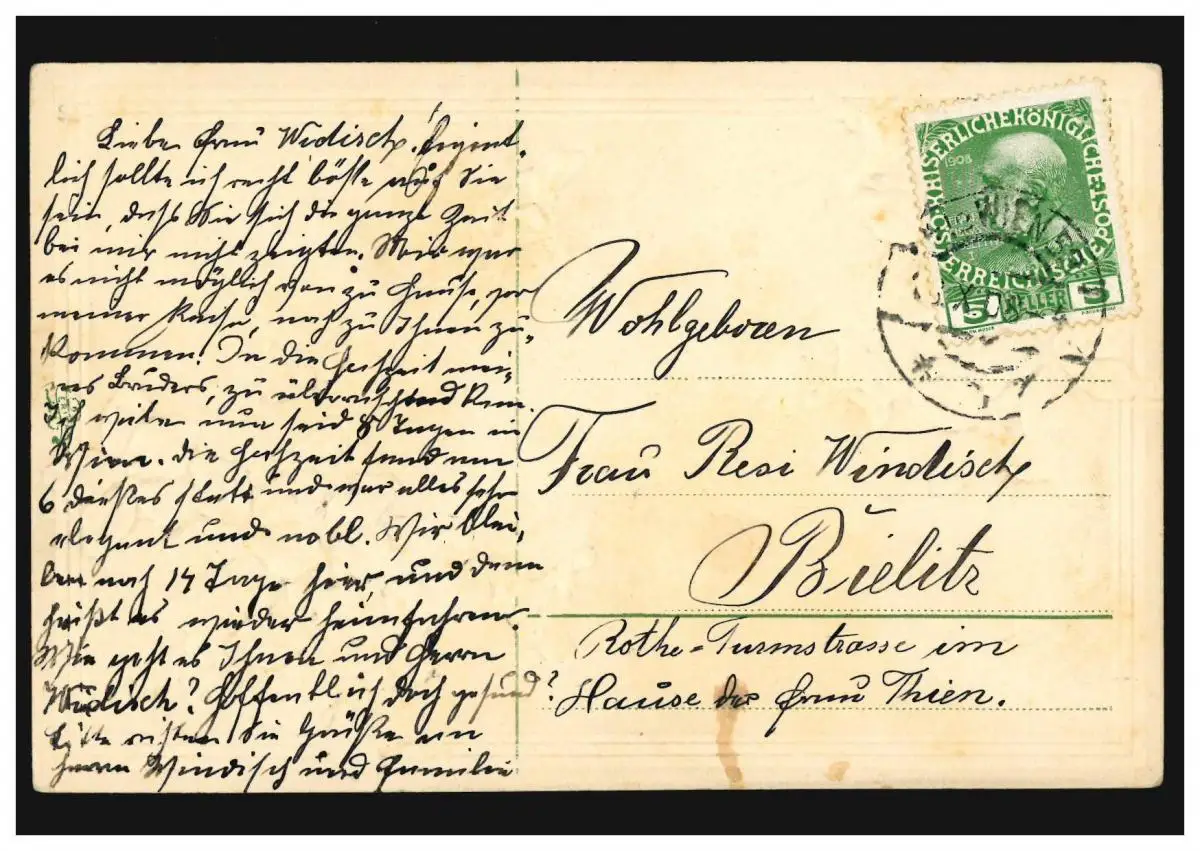 Liebe Frau Widisch! Eigent-
lich sollte ich recht bösse auf Sie
sein, dass Sie sich die ganze Zeit
bei mir nicht zeigten. Mir war
es nicht möglich von zu Hause, vor
meiner Reise, noch zu Ihnen zu
kommen. In die Hochzeit mei-
nes Bruders, zu
Ich weile nun seid 8 Tagen in
Wien. Die Hochzeit fand am
6 dießes statt und war alles sehr
elegant und nobl. Wir blei-
ben noch 14 Tage hier, und dann
heißt es wieder heimfahren.
Wie geht es Ihnen und Herrn
Widisch? Hoffentlich doch gesund?
Bitte richten Sie Grüße an
Herrn Windisch und Familie
Wohlgeboren
Frau Resi Windisch
Bielitz
Rothe-Turmstrasse im
Hause der Frau Thien.
KAISERLICHEKÖNIGLICHE
ÖSTERREICHISCHE POST
1908
5 HELLER 5
WIEN